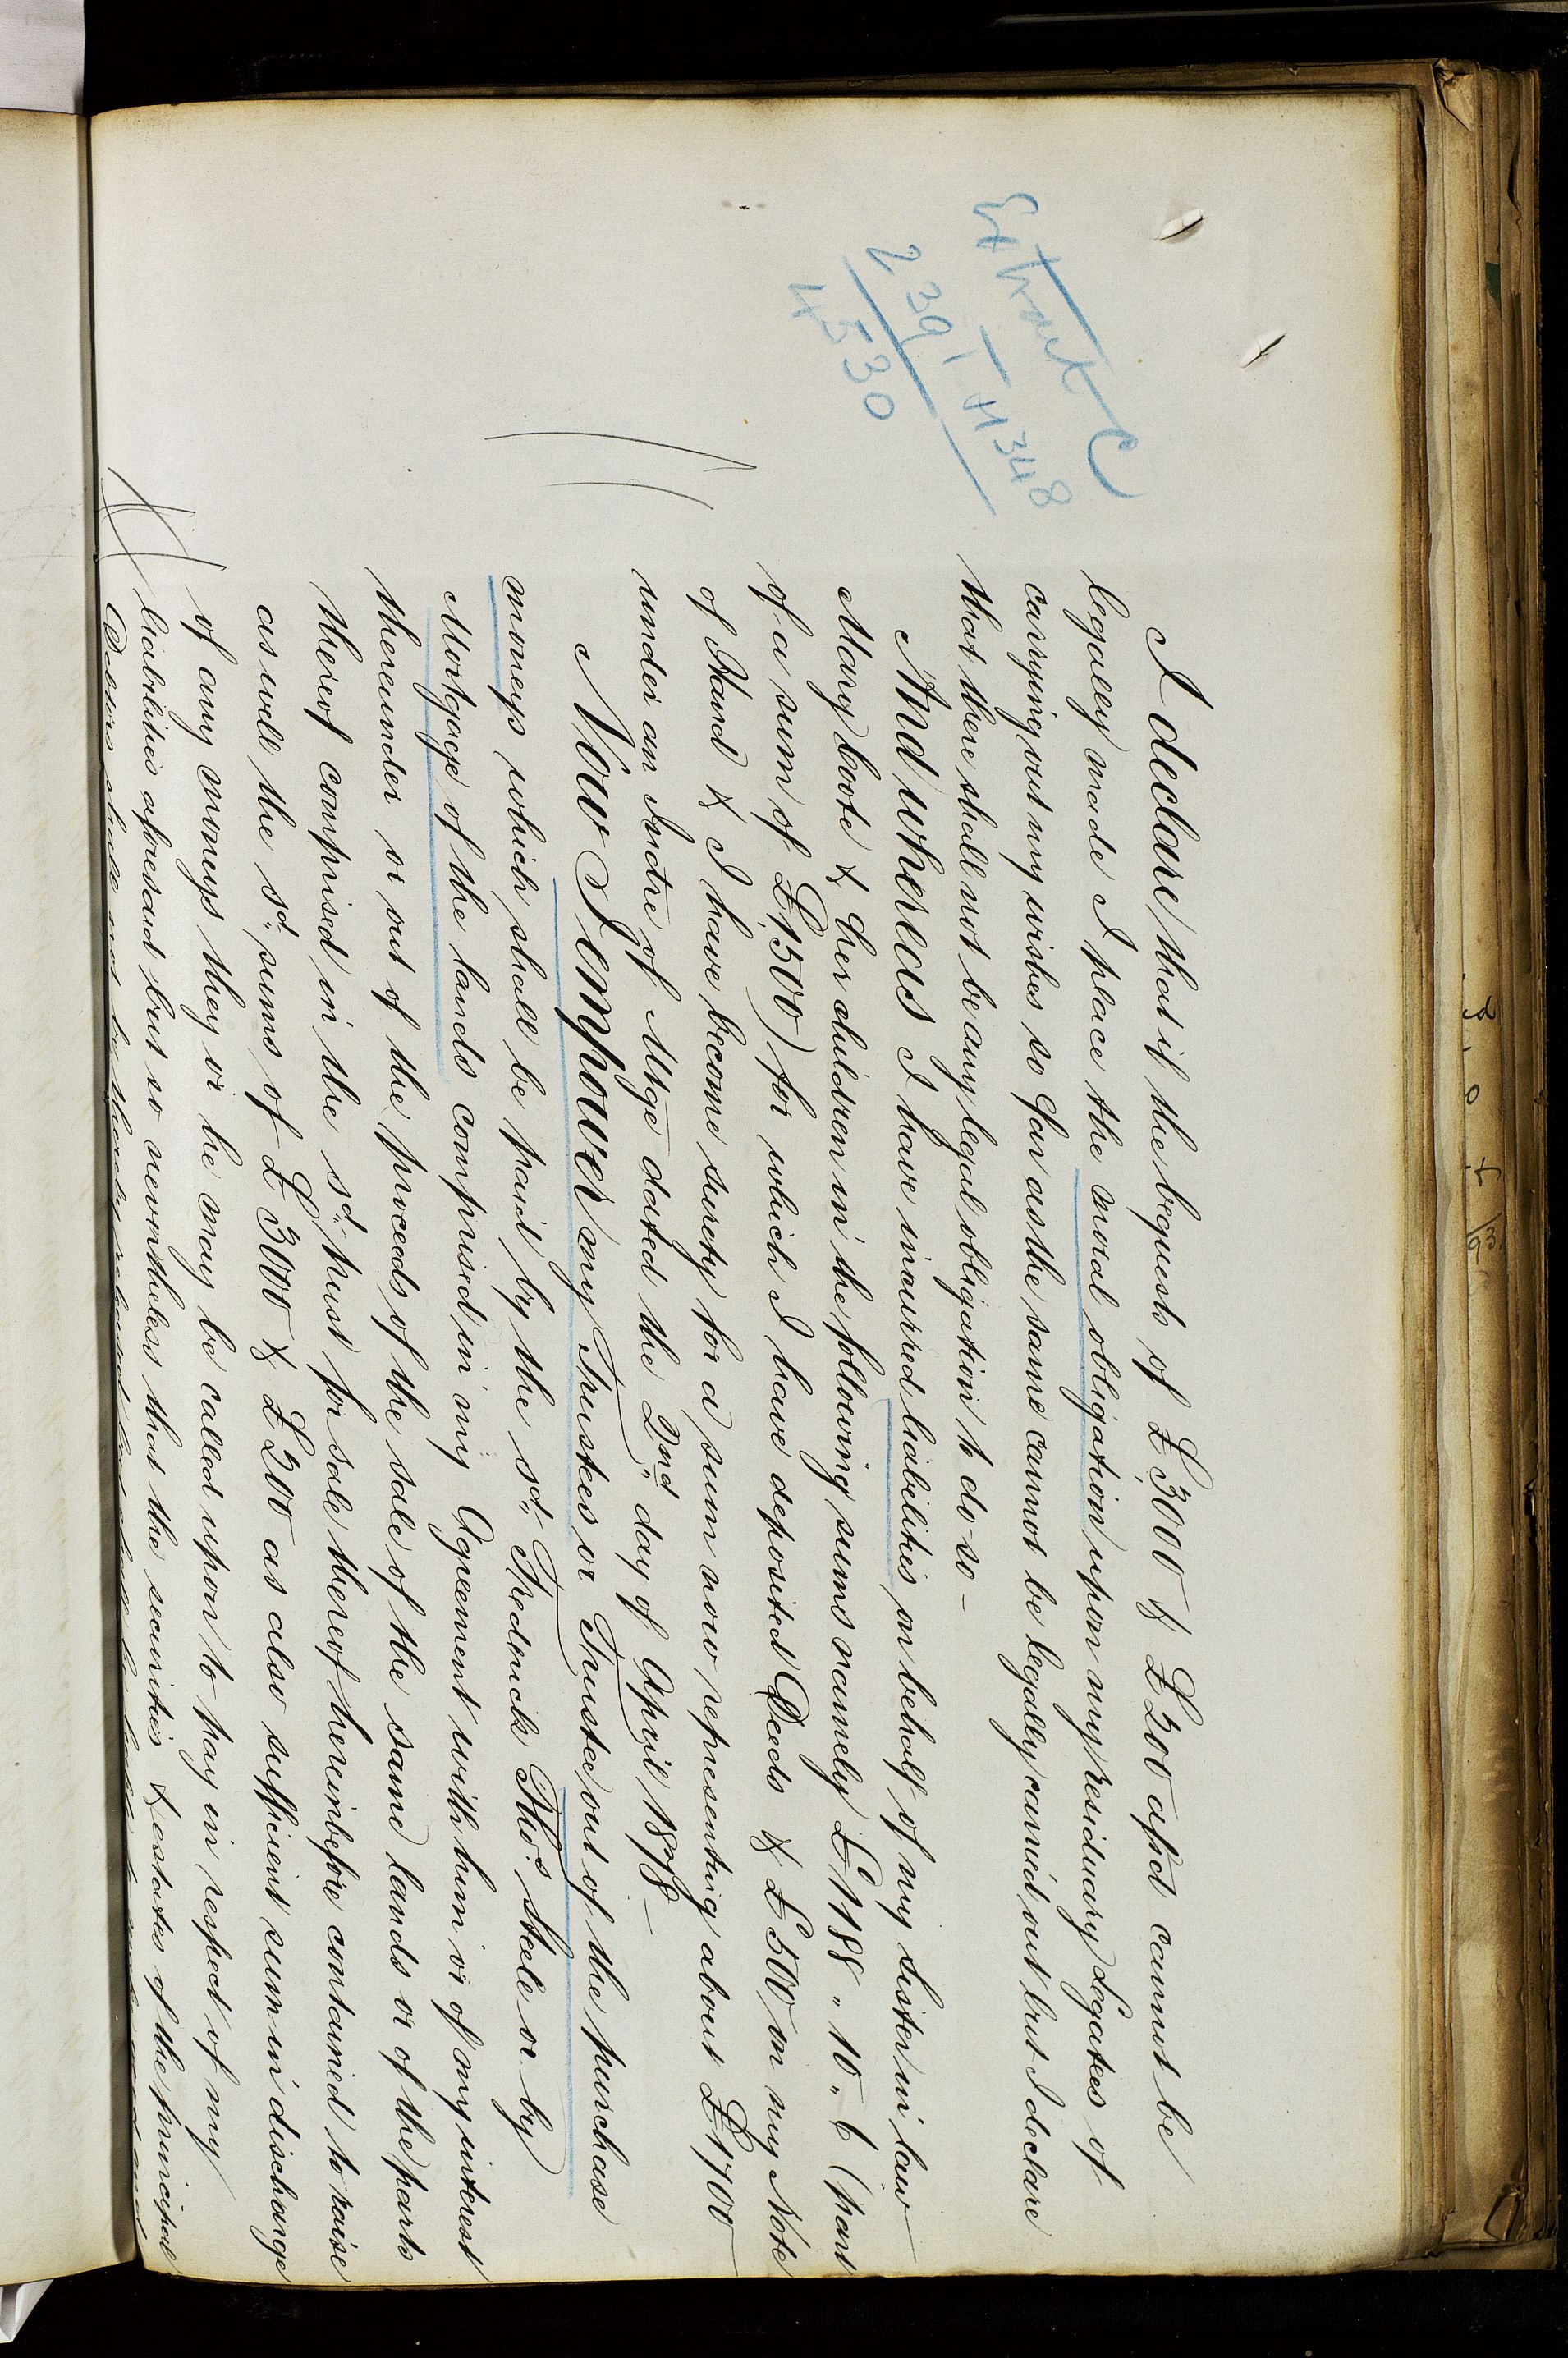 Extract C
239 1 - H 348
4530
I declare that if the bequests of £3000 & £200 afsd cannot be
legally made I place the moral obligation upon my residuary Legatees of
carrying out my wishes so far as the same cannot be legally carried out but I declare
that there shall not be any legal obligation to do so –
And whereas I have incurred liabilities on behalf of my Sister in law
Mary Coote & her children in the following sums namely £1188 " 10 " 6 (part
of a sum of £1500) for which I have deposited Deeds & £500 on my Note
of Hand & I have become surety for a sum now representing about £1700
under an Indre of Mtge dated the 2nd day of April 1878 –
Now I empower my Trustees or Trustee out of the purchase
moneys which shall be paid by the sd. Frederick Thos. Steele or by
Mortgage of the lands comprised in my Agreement with him or of my interest
thereunder or out of the proceeds of the sale of the same lands or of the parts
thereof comprised in the sd. trust for sale thereof hereinbefore contained to raise
as well the sd. sums of £3000 & £200 as also sufficient sum in discharge
of any moneys they or he may be called upon to pay in respect of my
liabilities aforesaid but so nevertheless that the securities & estates of the principal
Debtors shall not be thereby released